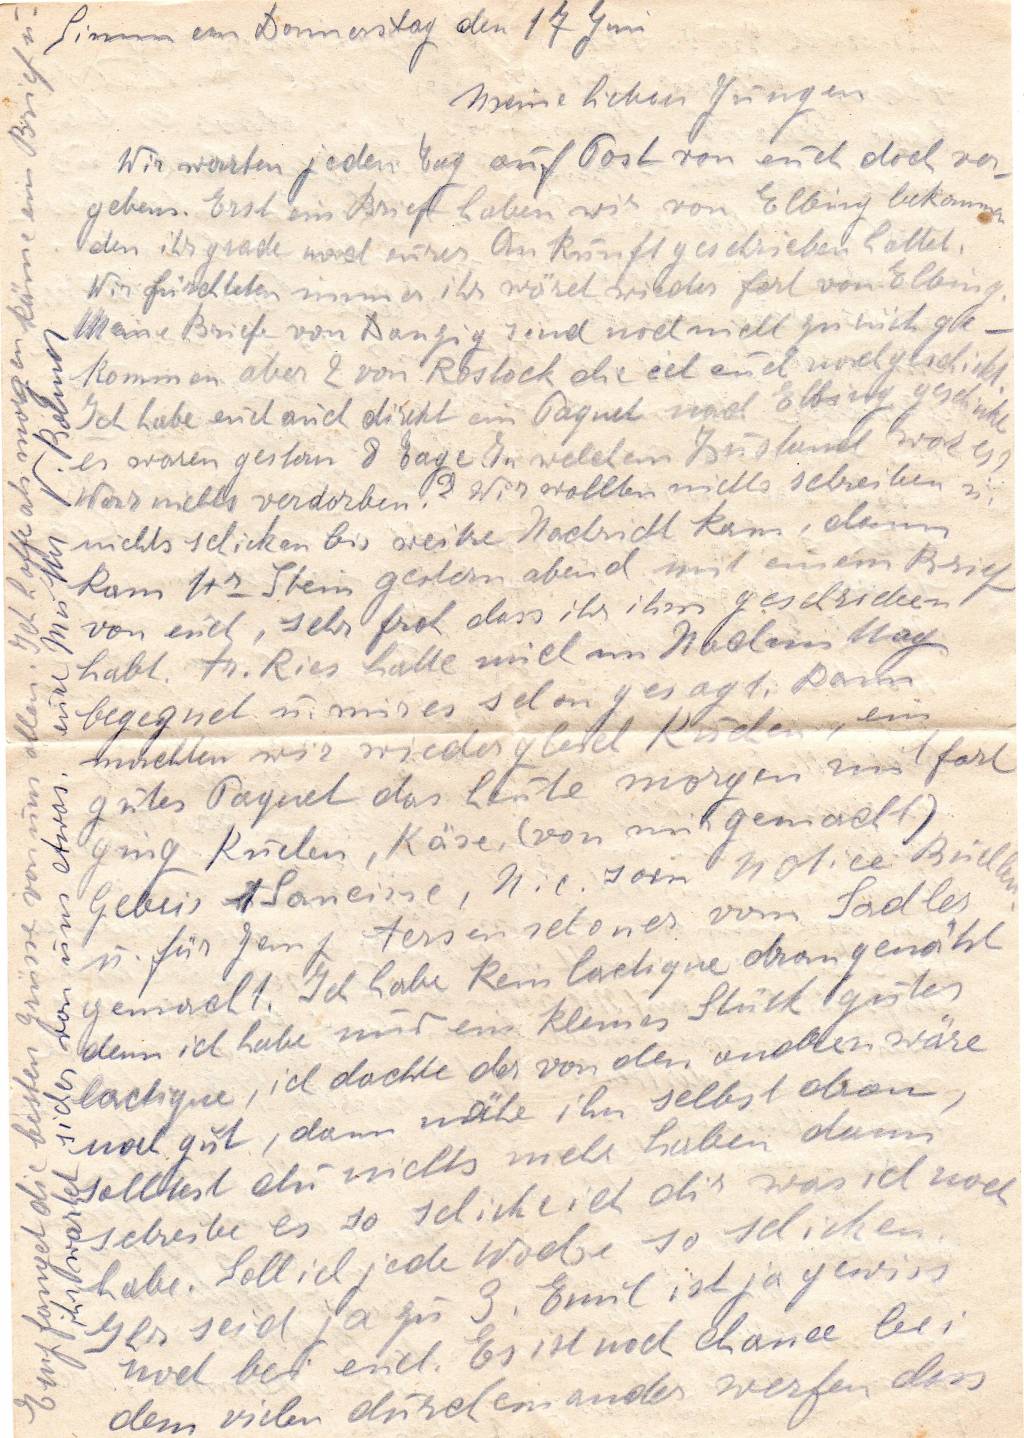 am Donnerstag den 17 Juni
Meine lieben Jungen
Wir warten jeden Tag auf Post von euch doch ver-
gebens. Erst ein Brief haben wir von Elbing bekommen
den ihr grade nach eurer Ankunft geschrieben hattet.
Wir fürchteten immer ihr wäret wieder fort von Elbing.
Meine Briefe von Danzig send noch nicht zurück ge-
kommen aber 2 von Rostock die ich euch nachgeschickt.
Ich habe euch auch direkt ein Paquet nach Elbing geschickt
es waren gestern 8 Tage In welchem Zustand war es?
Warr nichts verdorben? Wir wollten nichts schreiben u.
nichts schicken bis weitre Nachricht kam, dann
kam Hr Stein gestern abend mit einem Brief
von euch, sehr froh dass ihr ihm geschrieben
habt. Fr. Ries hatte mich am Nachmittag
begegnet u. mir es schon gesagt. Dann
machten wir wieder gleich Kuchen, ein
gutes Paquet das heute morgen mit fort
ging Kuchen, Käse, (von mir gemacht)
Gebeis Saucisse, Nic. sein Notice Büchlen.
u. für Jemp vom Sadler
gemacht. Ich habe kein lactique drangenäht
denn ich habe nur ein kleines Stück gutes
lactique, ich dachte der von den andren wäre
noch gut, dann nähe ihn selbst dran,
solltest du nichts mehr haben dann
schreibe es so schicke ich dir was ich noch
habe. Soll ich jede Woche so schicken.
Ihr seid ja zu 3. Emil ist ja gewiss
noch bei euch. Es ist noch chance bei
dem vielen durcheinander werfen dass
Empfanget die besten Grüsse von uns allen. Ich hoffe als morgen käme ein Brief u:
ihr wartet sicher von uns etwas. eure Mutter